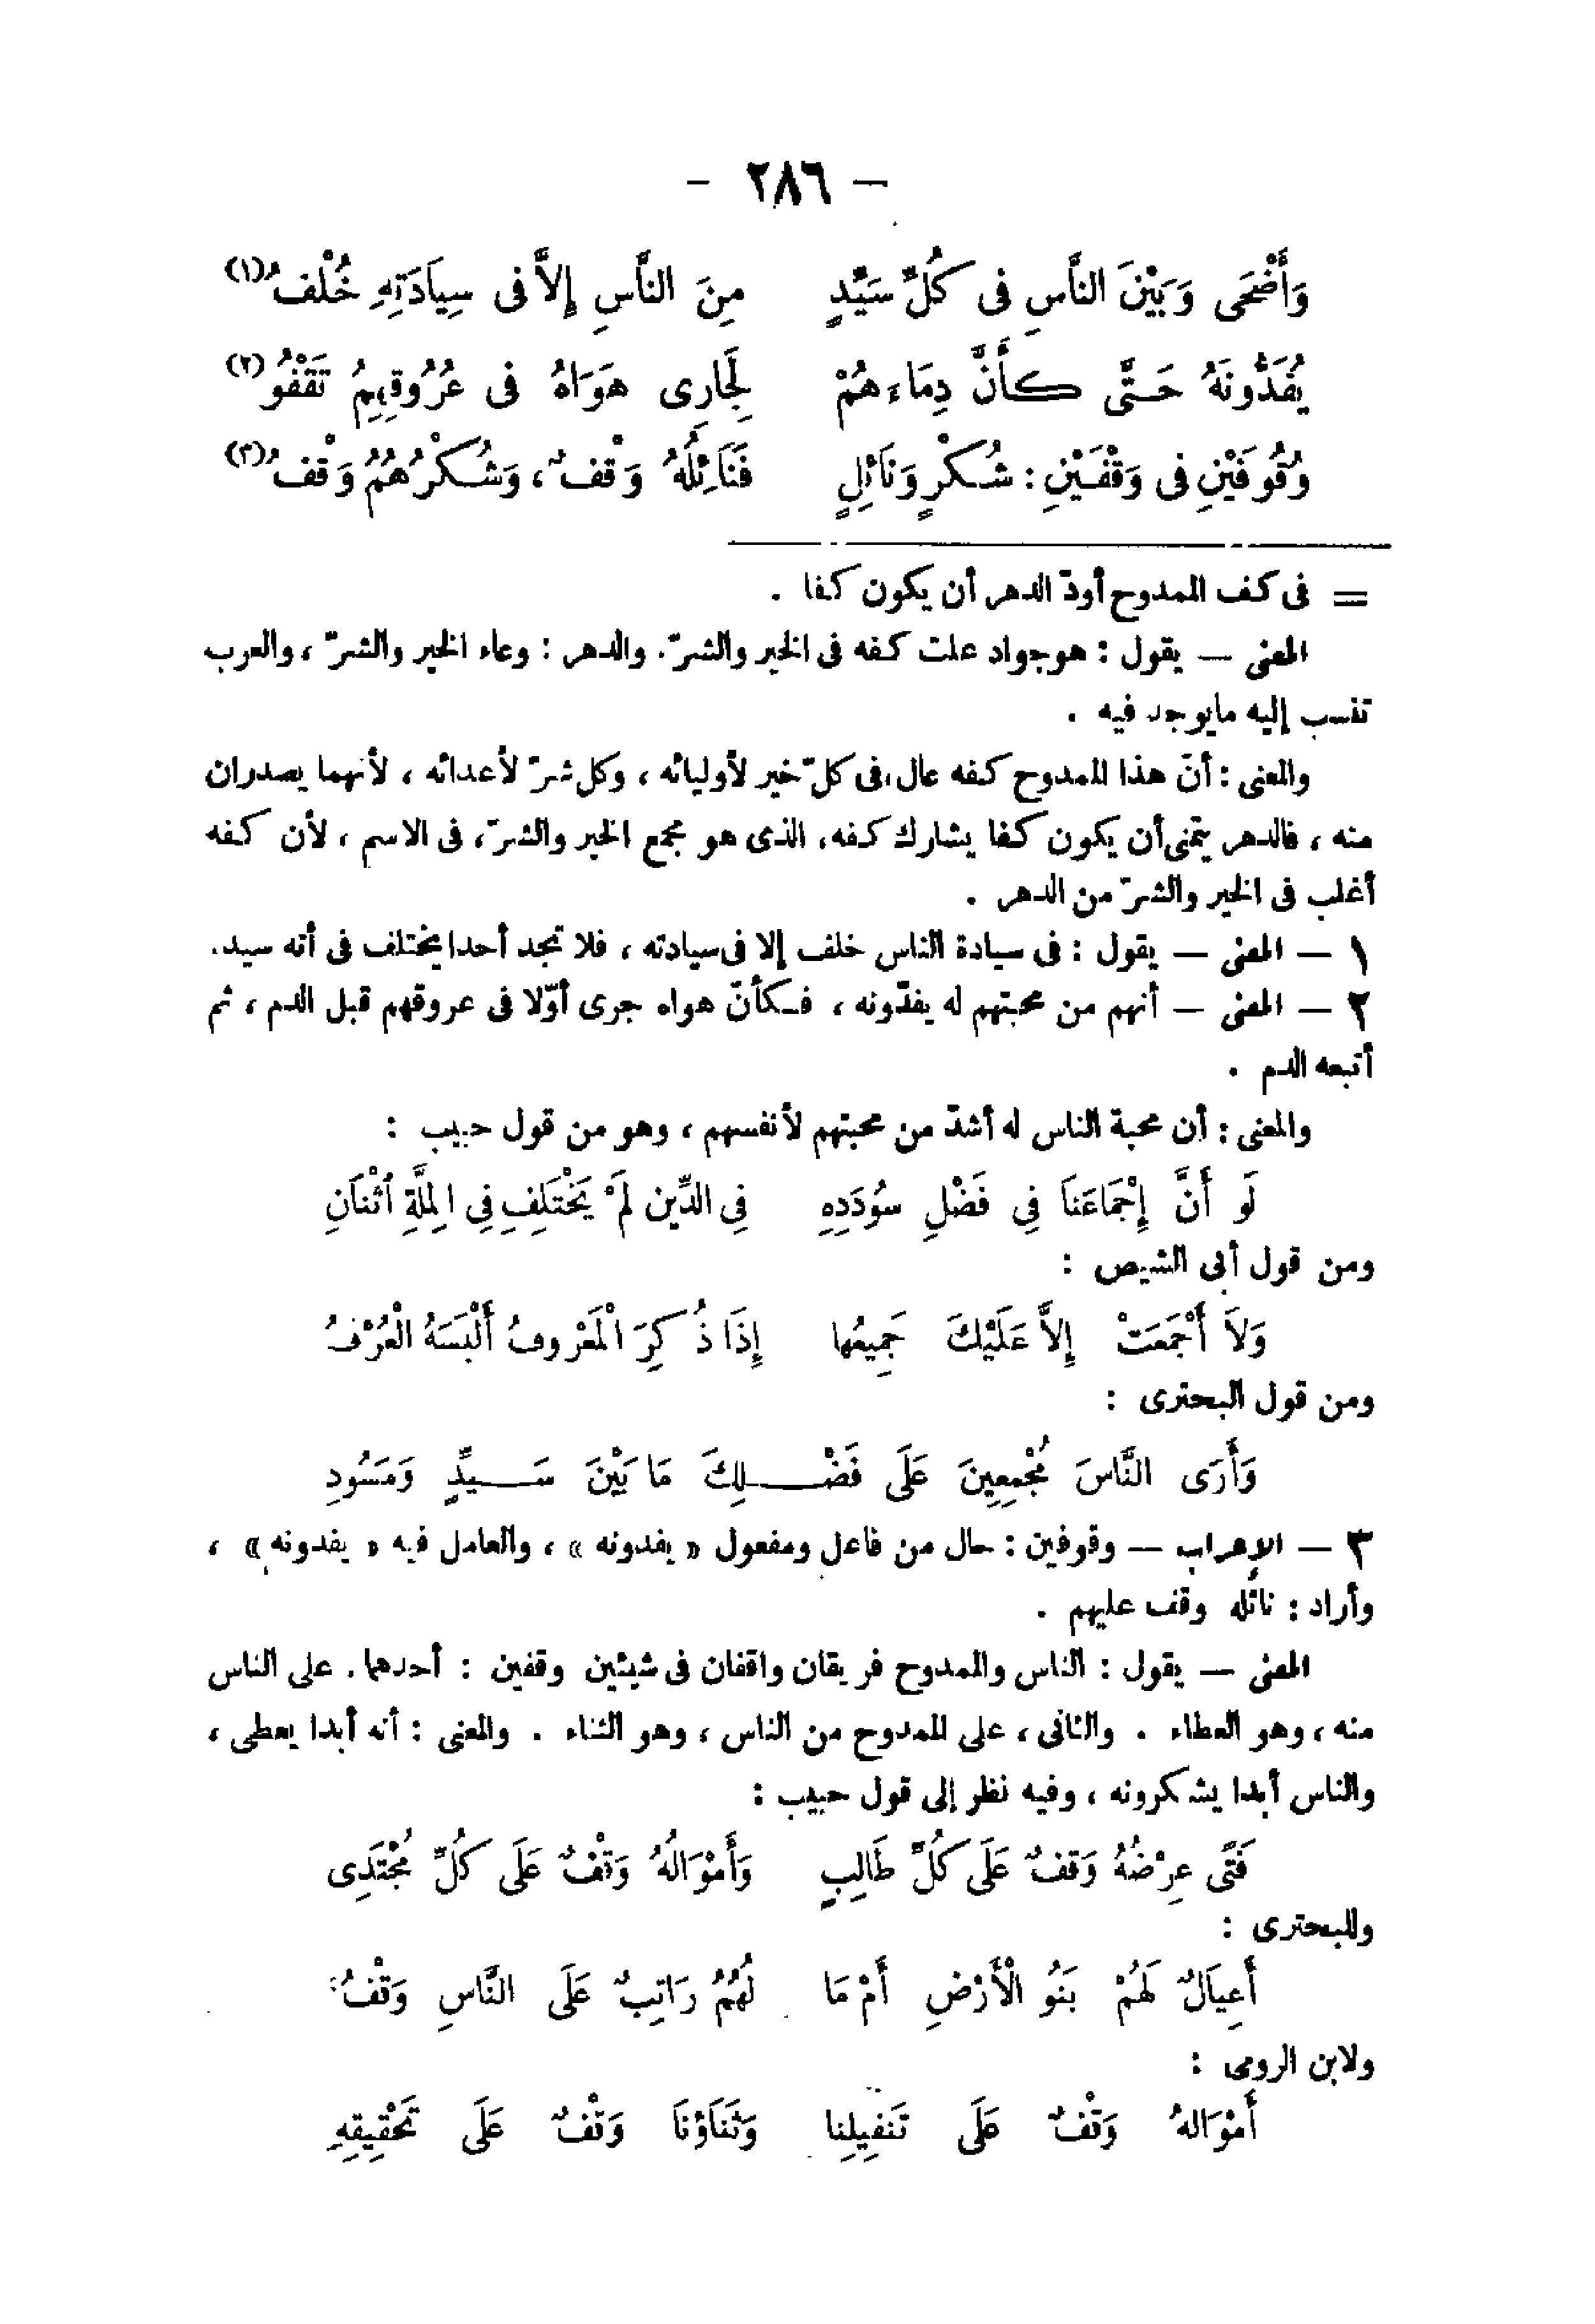 — ٢٨٦ —
وَأَضْحَى وَبَيْنَ النَّاسِ فى كُلِّ سَيِّدٍ مِنَ النَّاسِ إِلاَّ فى سِيَادَتِهِ خُلْفُ(١)
يُفَدُّونَهُ حَتَّى كَأَنَّ دِمَاءَهُمْ لِجَارِى هَوَاهُ فى عُرُوقِهِمُ تَقْفُو(٢)
وُقُوفَيْنِ فى وَقْفَيْنِ : شُكْرٍ وَنَائِلٍ فَنَائِلُهُ وَقْفٌ ، وَشُكْرُهُمُ وَقْفُ(٣)
= فى كف الممدوح أودّ الدهر أن يكون كفا .
المعنى — يقول : هوجواد علت كفه فى الخير والشرّ. والدهر : وعاء الخير والشرّ ، والعرب
تنسب إليه مايوجد فيه .
والمعنى : أنّ هذا الممدوح كفه عال فى كلّ خير لأوليائه ، وكل شرّ لأعدائه ، لأنهما يصدران
منه ، فالدهر يتمنى أن يكون كفا يشارك كفه، الذى هو مجمع الخير والشرّ، فى الاسم ، لأن كفه
أغلب فى الخير والشرّ من الدهر .
١ — المعنى — يقول : فى سيادة الناس خلف إلا فى سيادته ، فلا تجد أحدا يختلف فى أنه سيد.
٢ — المعنى — أنهم من محبتهم له يفدّونه ، فكأنّ هواه جرى أوّلا فى عروقهم قبل الدم ، ثم
أتبعه الدم .
والمعنى : أن محبة الناس له أشدّ من محبتهم لأنفسهم ، وهو من قول حبيب :
لَو أَنَّ إِجْمَاعَنَا فِى فَضْلِ سُؤدَدِهِ فِى الدِّين لَمْ يَخْتَلِفِ فِى الِملَّةِ اُثْنَانِ
ومن قول أبى الشيص :
وَلاَ أَجْمَعَتْ إِلاَّ عَلَيْكَ جَمِيعُها إِذَا ذُكِرَ الْمَعْرُوفُ أَلْبَسَهُ الْعُرْفُ
ومن قول البحترى :
وَأَرَى النَّاسَ مُجْمِعِينَ عَلَى فَضْلِكَ مَا بَيْنَ سَيِّدٍ وَمَسُودِ
٣ — الإعراب — وقوفين : حال من فاعل ومفعول « يفدونه » ، والعامل فيه « يفدونه » ،
وأراد : نائله وقف عليهم .
المعنى — يقول : الناس والممدوح فريقان واقفان فى شيئين وقفين : أحدهما. على الناس
منه ، وهو العطاء . والثانى ، على الممدوح من الناس ، وهو الثناء . والمعنى : أنه أبدا يعطى ،
والناس أبدا يشكرونه ، وفيه نظر إلى قول حبيب :
فَتًى عِرْضُهُ وَقفٌ عَلَى كُلِّ طَالِبٍ وَأَمْوَالُهُ وَقْفٌ عَلَى كُلِّ مُجْتَدِى
وللبحترى :
أَعِيَالٌ لَهُمْ بَنُو الْأَرْضِ أَمْ مَا لَهُمُ رَاتِبٌ عَلَى النَّاسِ وَقْفُ
ولابن الرومى :
أَمْوَالهُ وَقْفٌ عَلَى تَنفِيلِنا وَثَنَاؤنَا وَقْفٌ عَلَى تَحْقِيقِهِ